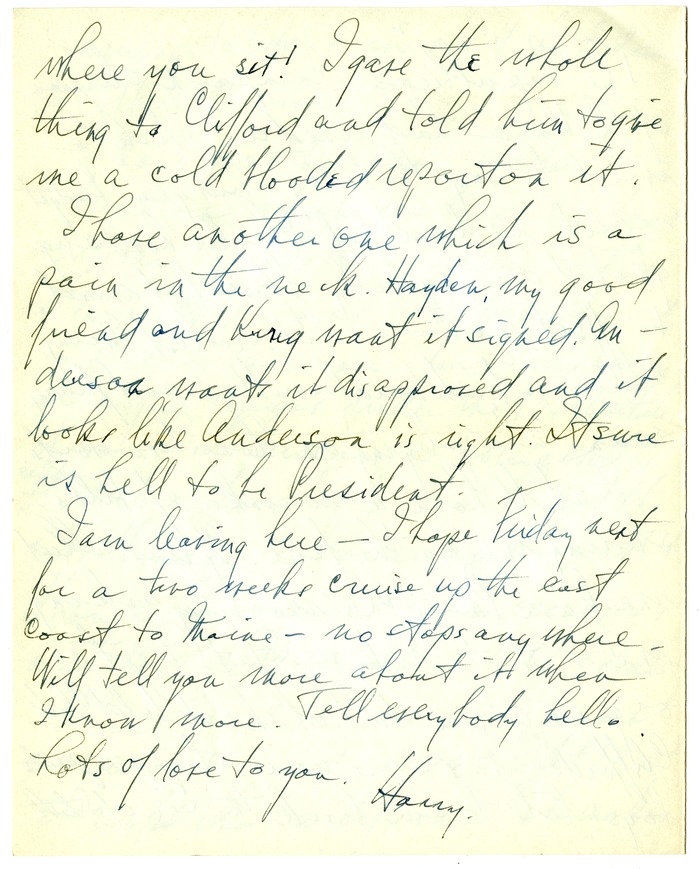 where you sit! I gave the whole
thing to Clifford and told him to give
me a cold blooded report on it.
I have another one which is a
pain in the neck. Hayden, my good
friend and Krug want it signed. An-
derson wants it disapproved and it
looks like Anderson is right. It sure
is hell to be President.
I am leaving here - I hope Friday next
for a two weeks cruise up the east
coast to Maine - no stops any where.
Will tell you more about it when
I know more. Tell everybody hello.
Lots of love to you.
Harry.